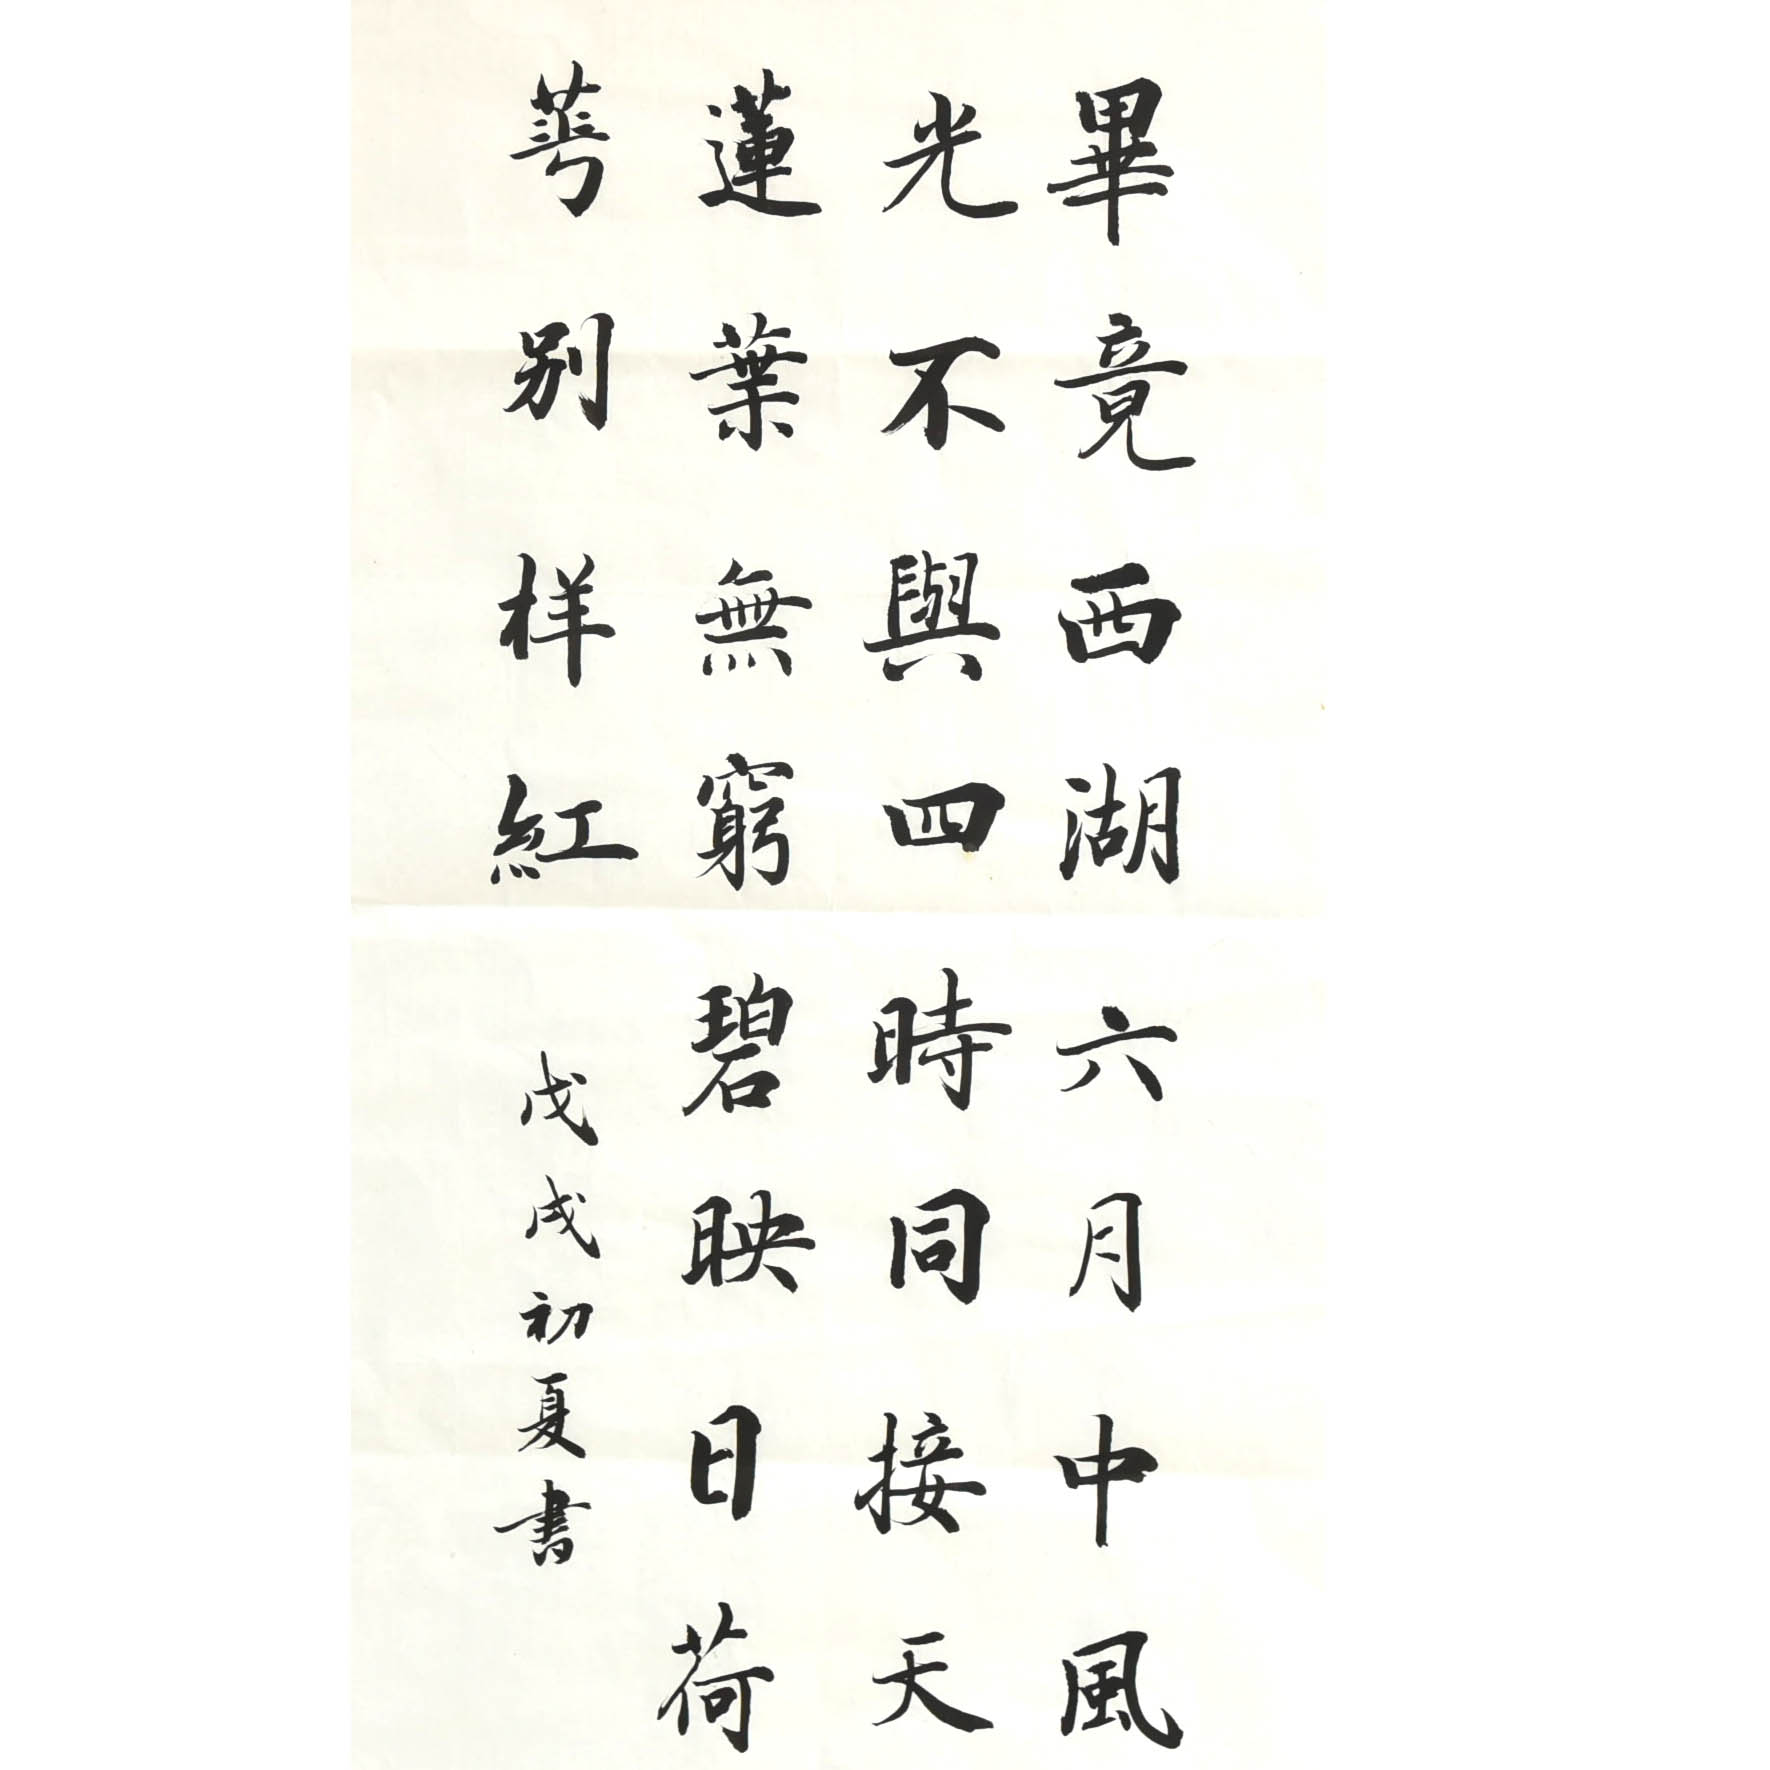 畢竟西湖六月中風
光不與四時同接天
蓮葉無窮碧映日荷
蕚别样紅
戊戌初夏書